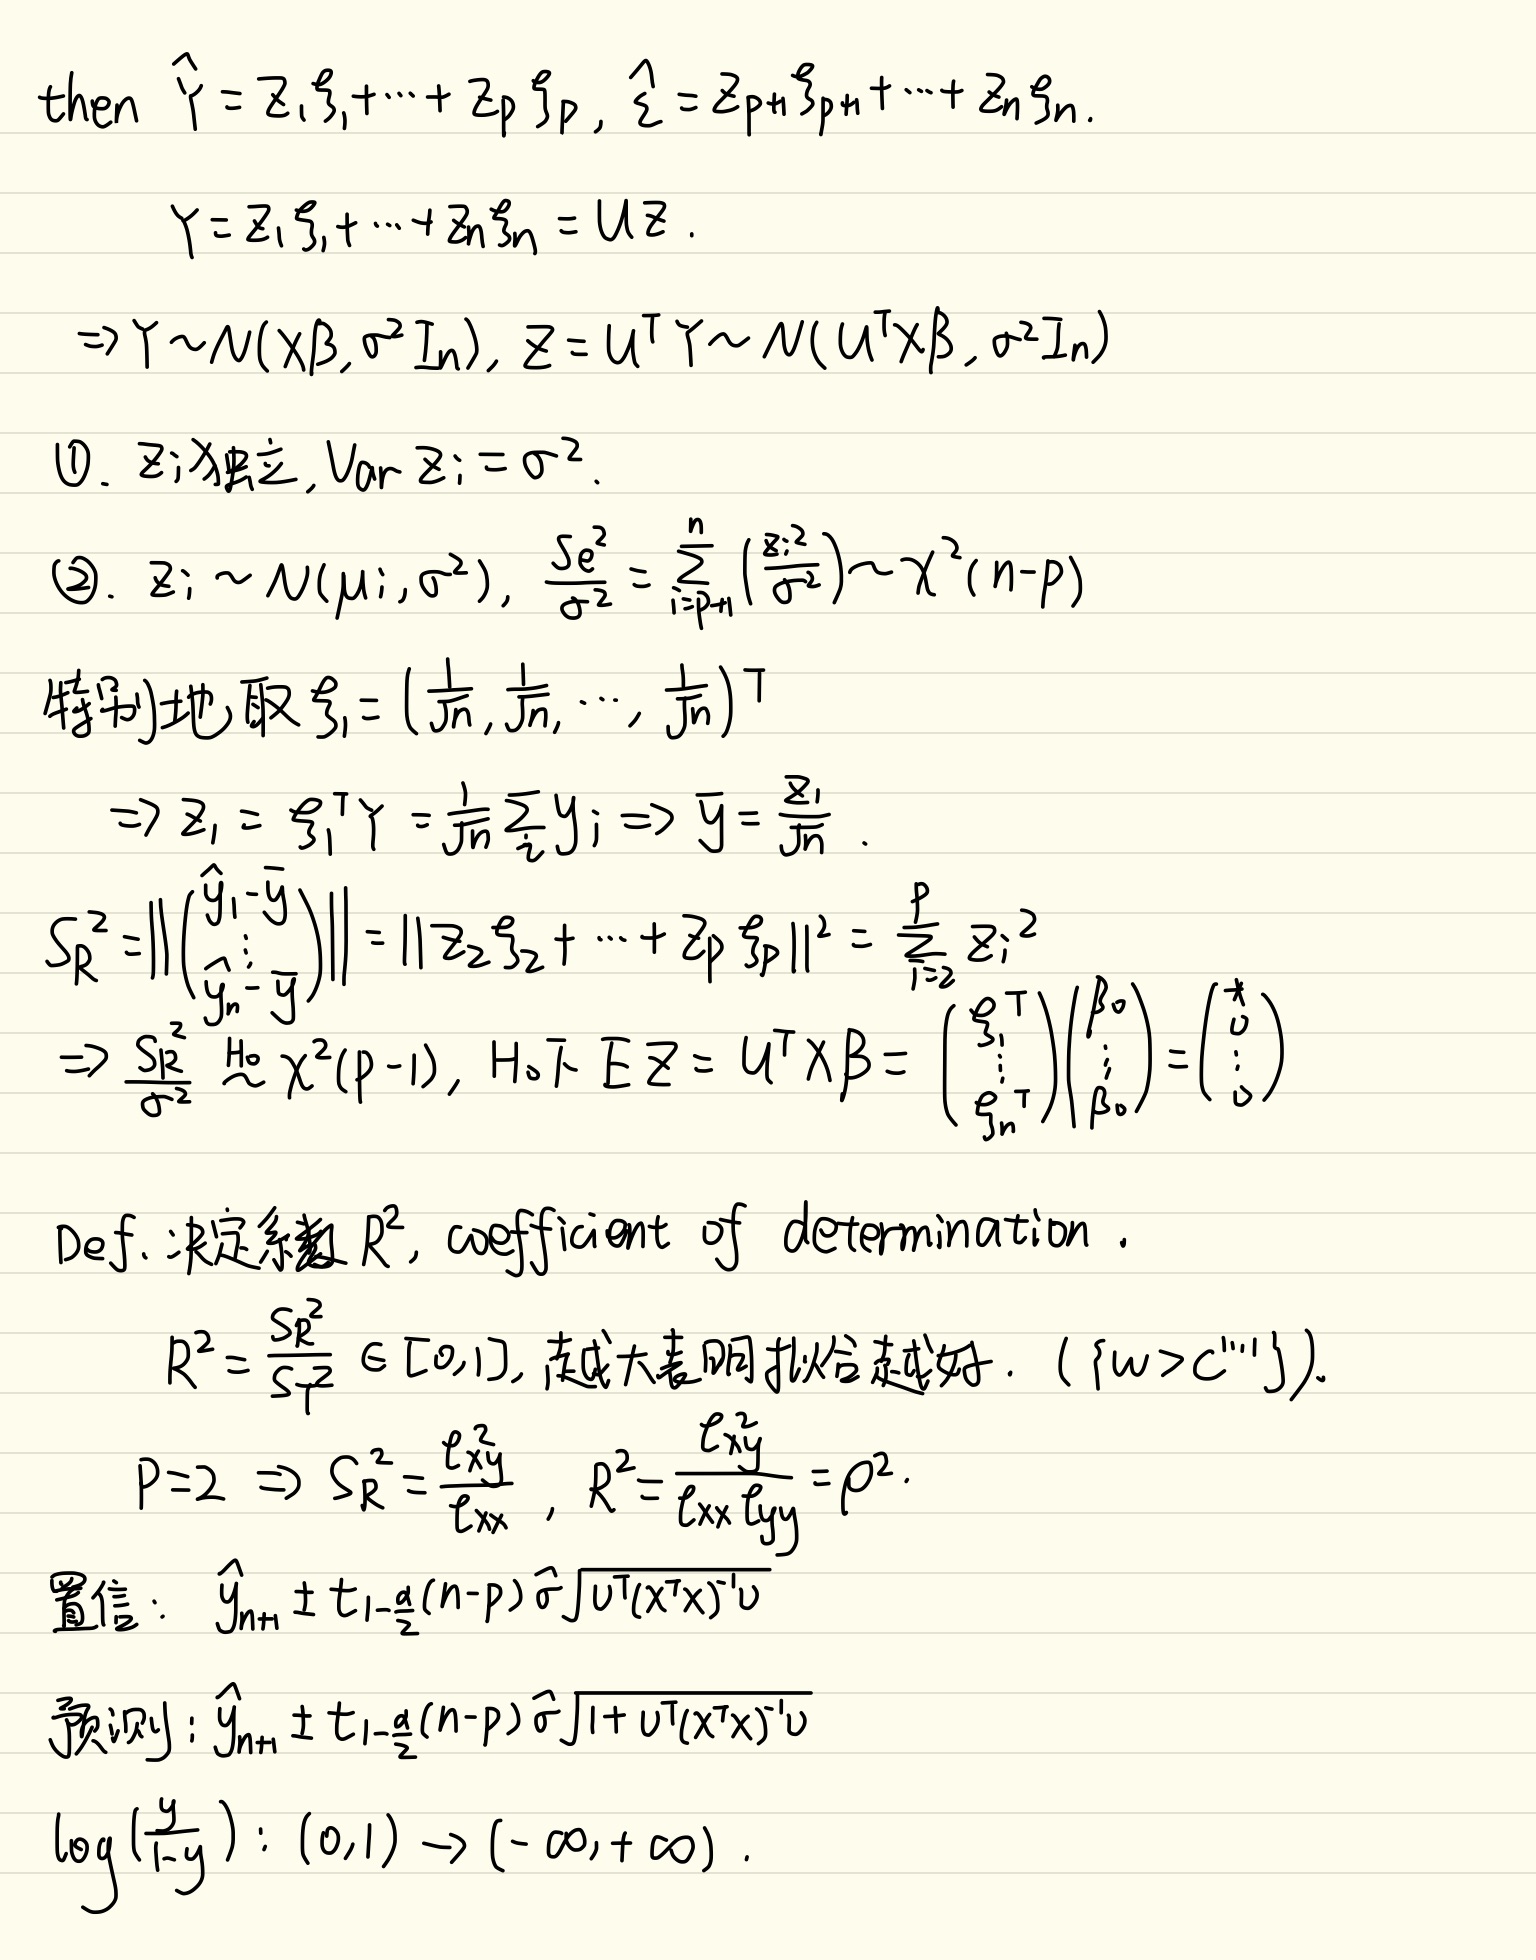 then Ŷ = z₁ξ₁+⋯+ z_pξ_p, ε̂ = z_{p+1}ξ_{p+1}+⋯+ z_nξ_n.
Y = z₁ξ₁+⋯+z_nξ_n = UZ.
⇒ Y ~ N(Xβ, σ²I_n), Z = U^T Y ~ N(U^T Xβ, σ²I_n)
①. z_i 独立, Var z_i = σ².
②. z_i ~ N(μ_i, σ²), Se²/σ² = ∑_{i=p+1}^{n} (z_i²/σ²) ~ χ²(n-p)
特别地取 ξ₁ = (1/√n, 1/√n, ⋯, 1/√n)^T
⇒ z₁ = ξ₁^T Y = 1/√n ∑_i y_i ⇒ ȳ = z₁/√n .
S_R² = ‖(ŷ₁-ȳ ⋮ ŷ_n-ȳ)‖ = ‖z₂ξ₂+ ⋯+ z_pξ_p‖² = ∑_{i=2}^{p} z_i²
⇒ S_R²/σ² ~^{H₀} χ²(p-1), H₀下 EZ = U^T Xβ = (ξ₁^T ⋮ ξ_n^T)(β₀ ⋮ β₀) = (* 0 ⋮ 0)
Def. 决定系数 R², coefficient of determination.
R² = S_R²/S_T² ∈ [0,1], 越大表明拟合越好. ({W > C'''''}).
P=2 ⇒ S_R² = ℓ_{xy}²/ℓ_{xx}, R² = ℓ_{xy}²/(ℓ_{xx} ℓ_{yy}) = ρ².
置信: ŷ_{n+1} ± t_{1-α/2}(n-p) σ̂ √(υ^T(X^TX)^{-1}υ)
预测: ŷ_{n+1} ± t_{1-α/2}(n-p) σ̂ √(1+υ^T(X^TX)^{-1}υ)
log(y/(1-y)) : (0,1) → (-∞,+∞).